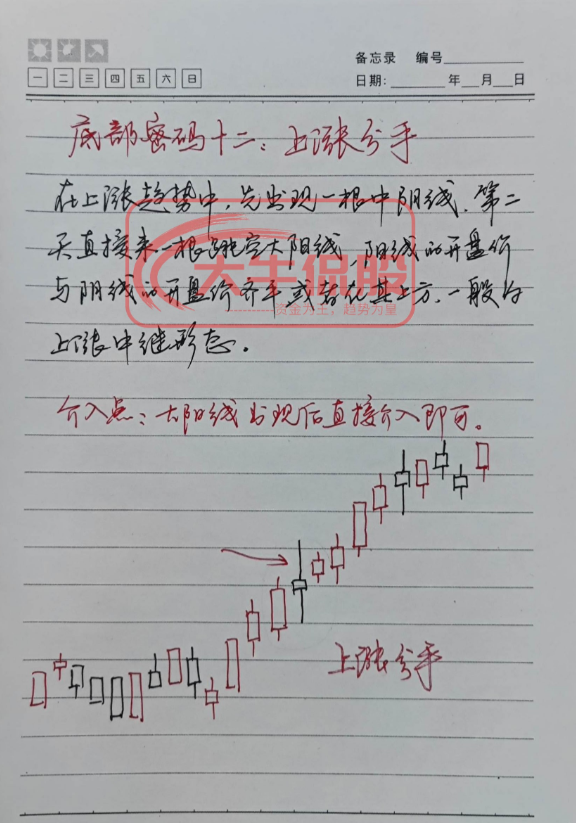 备忘录 编号
一 二 三 四 五 六 日
日期: 年 月 日
底部密码十二:上涨分手
在上涨趋势中,先出现一根中阴线,第二
天直接来一根跳空大阳线,阳线的开盘价
与阴线的开盘价齐平或者在其上方,一般为
上涨中继形态。
大牛侃股
资金为王,趋势为量
介入点:大阳线出现后直接介入即可。
上涨分手